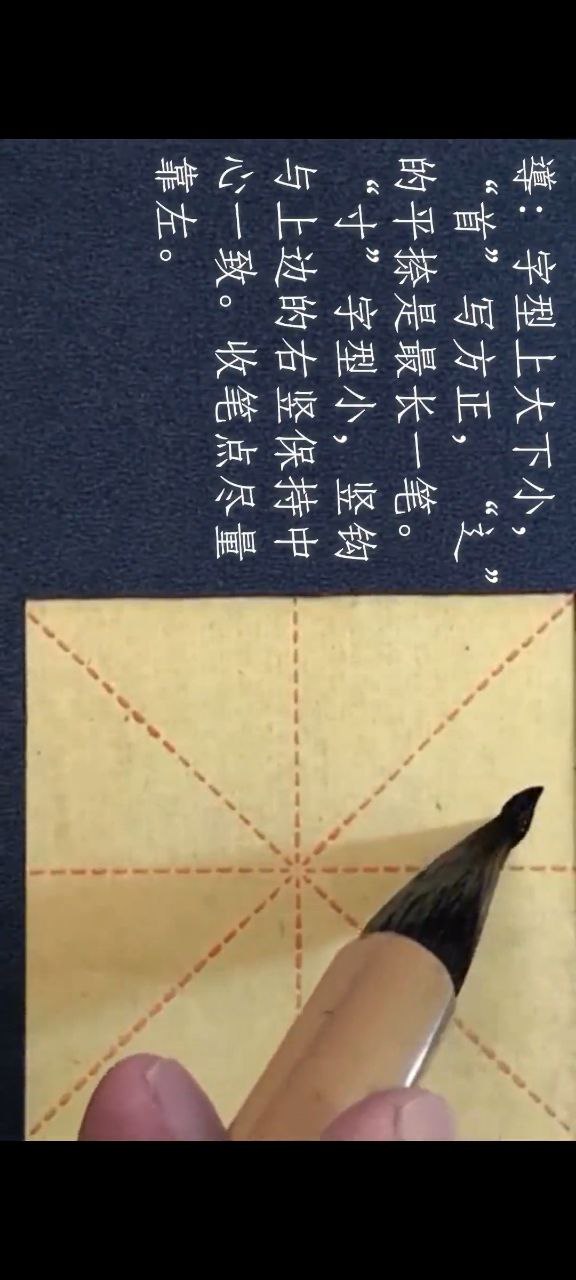 導：字型上大下小，
“首”写方正，“辶”
的平捺是最长一笔。
“寸”字型小，竖钩
与上边的右竖保持中
心一致。收笔点尽量
靠左。